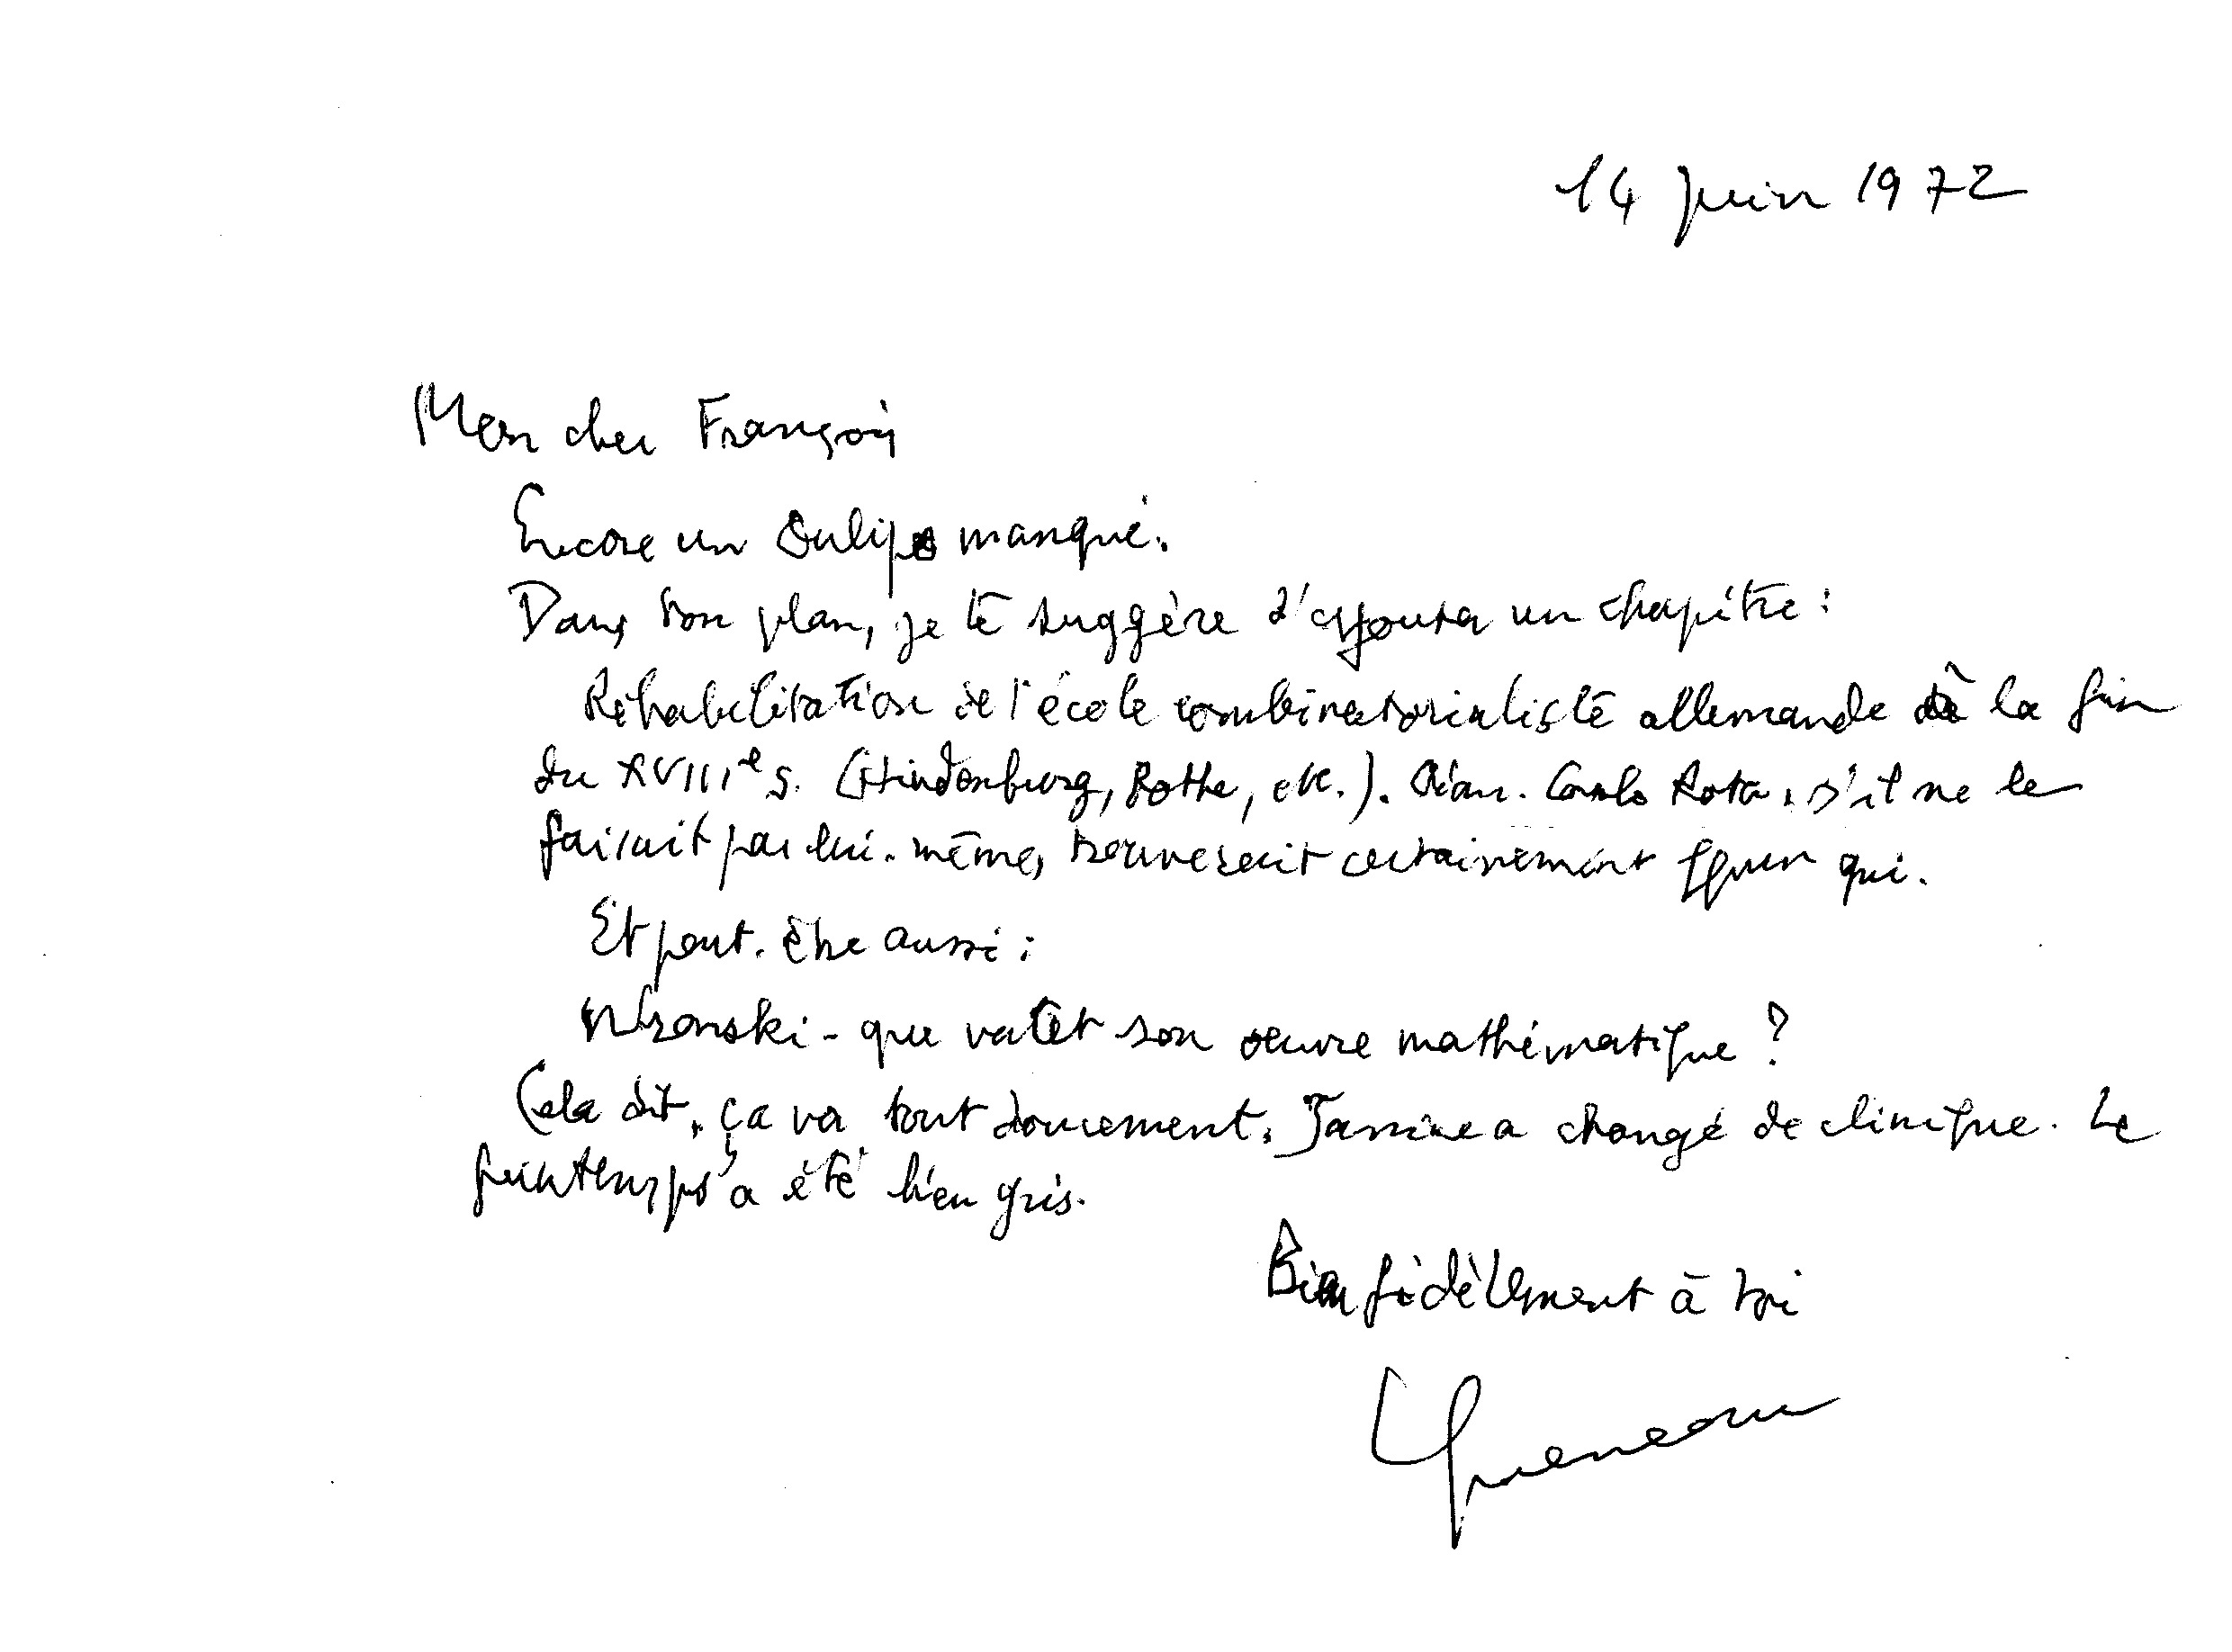 14 juin 1972
Mon cher François
Encore un Oulipo manqué.
Dans ton plan, je te suggère d'ajouter un chapitre :
Réhabilitation de l'école combinatorialiste allemande de la fin
du XVIIIe s. (Hindenburg, Rothe, etc.). Gian-Carlo Rota, s'il ne le
faisait pas lui-même, trouverait certainement qqun qui.
Et peut-être aussi :
Wronski - que vaut son œuvre mathématique ?
Cela dit, ça va tout doucement. Janine a changé de clinique. Le
printemps a été bien gris.
Bien fidèlement à toi
Queneau